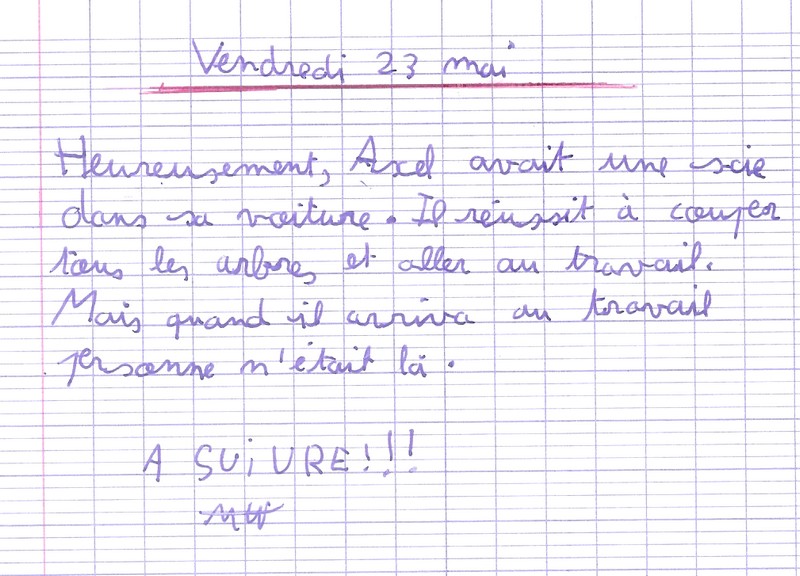 Vendredi 23 mai
Heureusement, Axel avait une scie
dans sa voiture. Il réussit à couper
tous les arbres et aller au travail.
Mais quand il arriva au travail
personne n'était là.
A SUiVRE!!!